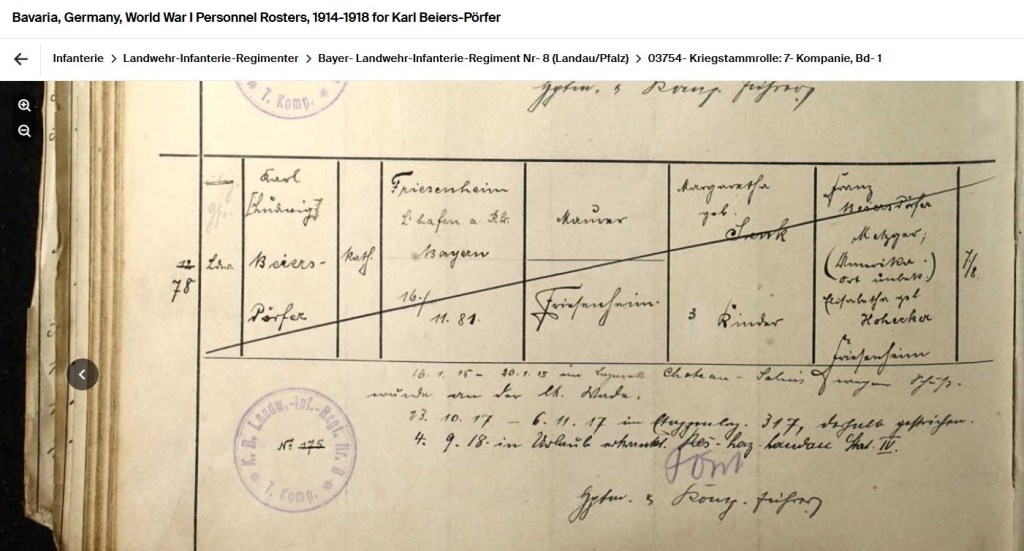 Bavaria, Germany, World War I Personnel Rosters, 1914-1918 for Karl Beiers-Pörfer
Infanterie > Landwehr-Infanterie-Regimenter > Bayer- Landwehr-Infanterie-Regiment Nr- 8 (Landau/Pfalz) > 03754- Kriegstammrolle: 7- Kompanie, Bd- 1
7. Komp.
Hptm. u. Komp. führer
78
Ldw.
Karl
[Ludwig]
Beiers-
Dörfer
kath.
Friesenheim
L'hafen a. Rh.
Bayern
16./
11. 81.
Maurer
Friesenheim.
Margaretha
geb.
3 Kinder
Franz
Beiersdörfer
Metzger;
(Amerika.
Ort unbek.)
Elisabetha gb
Hohecker
Friesenheim
7/8
16. 1. 15 - 20. 1. 15 im Chateau-Salins wegen Schuß-
wunde an der lk. Wade.
23. 10. 17 - 6. 11. 17 in 317, deshalb gestrichen.
4. 9. 18. in Urlaub erkrankt. Res. Laz. Landau Stat. IV.
K. B. Landw.-Inf.-Regt. Nr. 8
No 175
7. Komp.
Hptm. u. Komp. führer